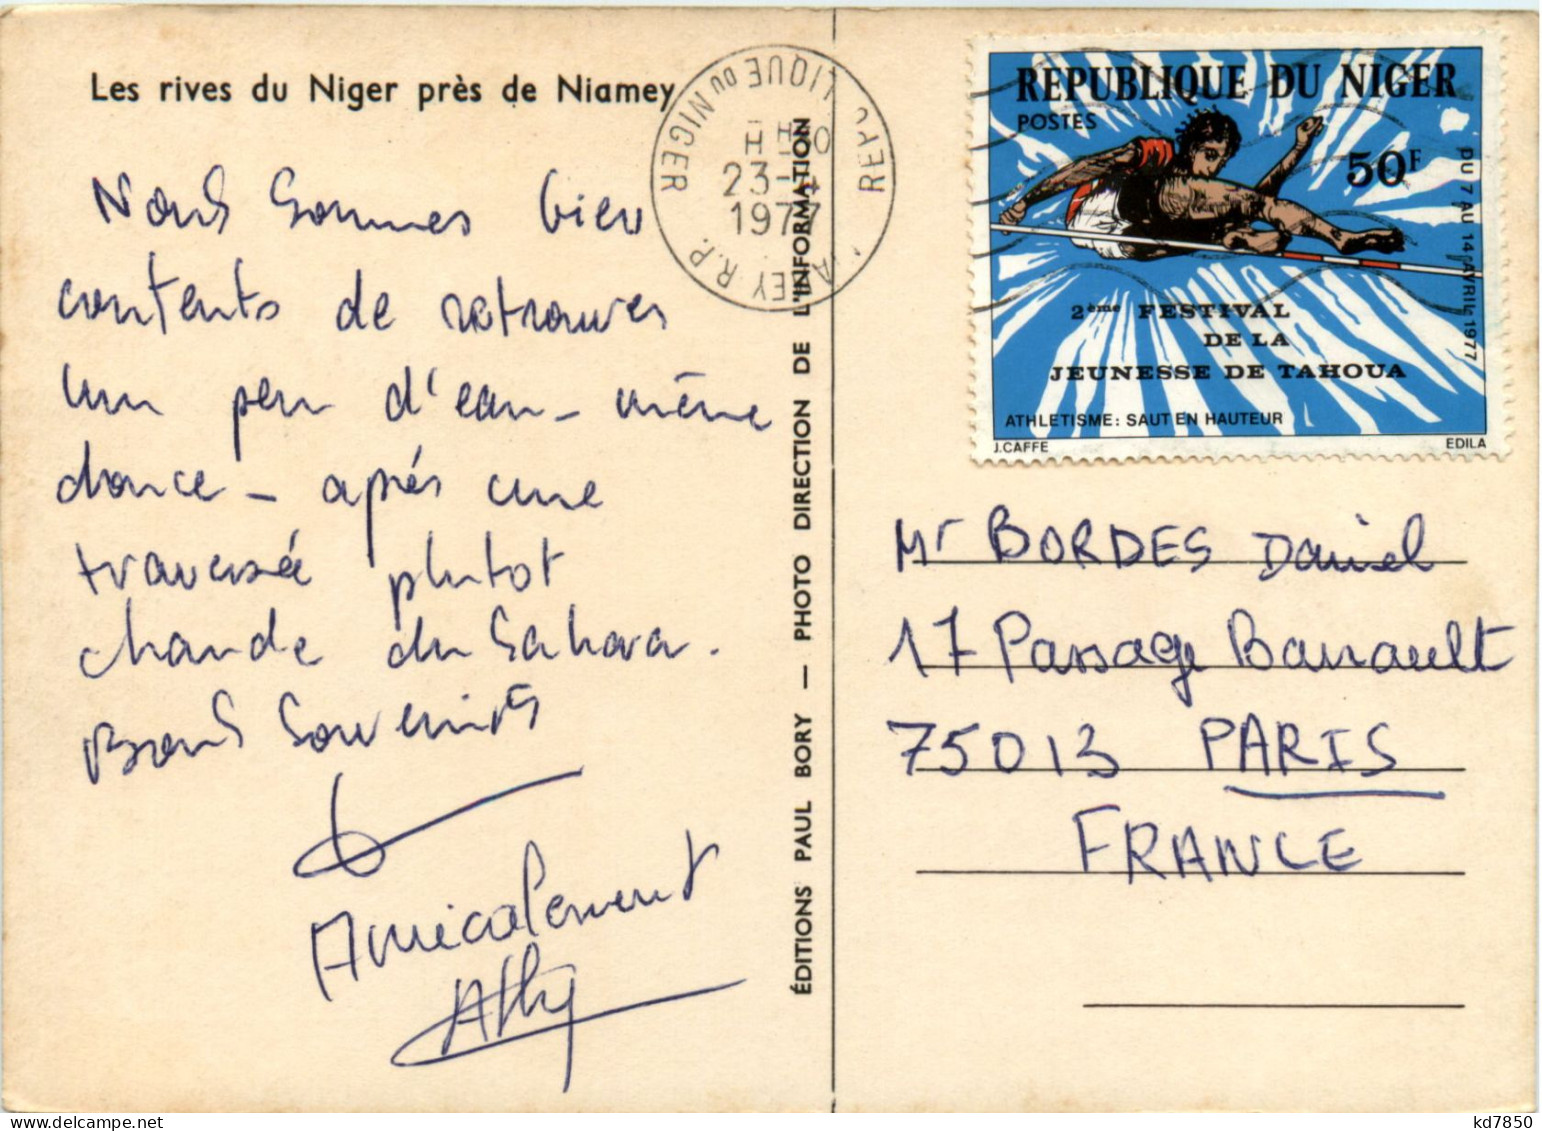 Les rives du Niger près de Niamey
Nous sommes bien
contents de retrouver
un peu d'eau - même
douce - après une
traversée plutot
chaude du Sahara.
Bons souvenirs
Amicalement
ÉDITIONS PAUL BORY — PHOTO DIRECTION DE L'INFORMATION
LIQUE DU NIGER
23-4
1977
R.P.
REPUBLIQUE DU NIGER
POSTES
50F
DU 7 AU 14 AVRIL 1977
2ème FESTIVAL
DE LA
JEUNESSE DE TAHOUA
ATHLETISME: SAUT EN HAUTEUR
J.CAFFE EDILA
Mr BORDES Daniel
17 Passage Barrault
75013 PARIS
FRANCE
kd7850